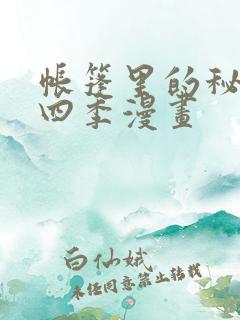 帐篷里的秘
四季漫畫
白仙娥
未经同意禁止转载